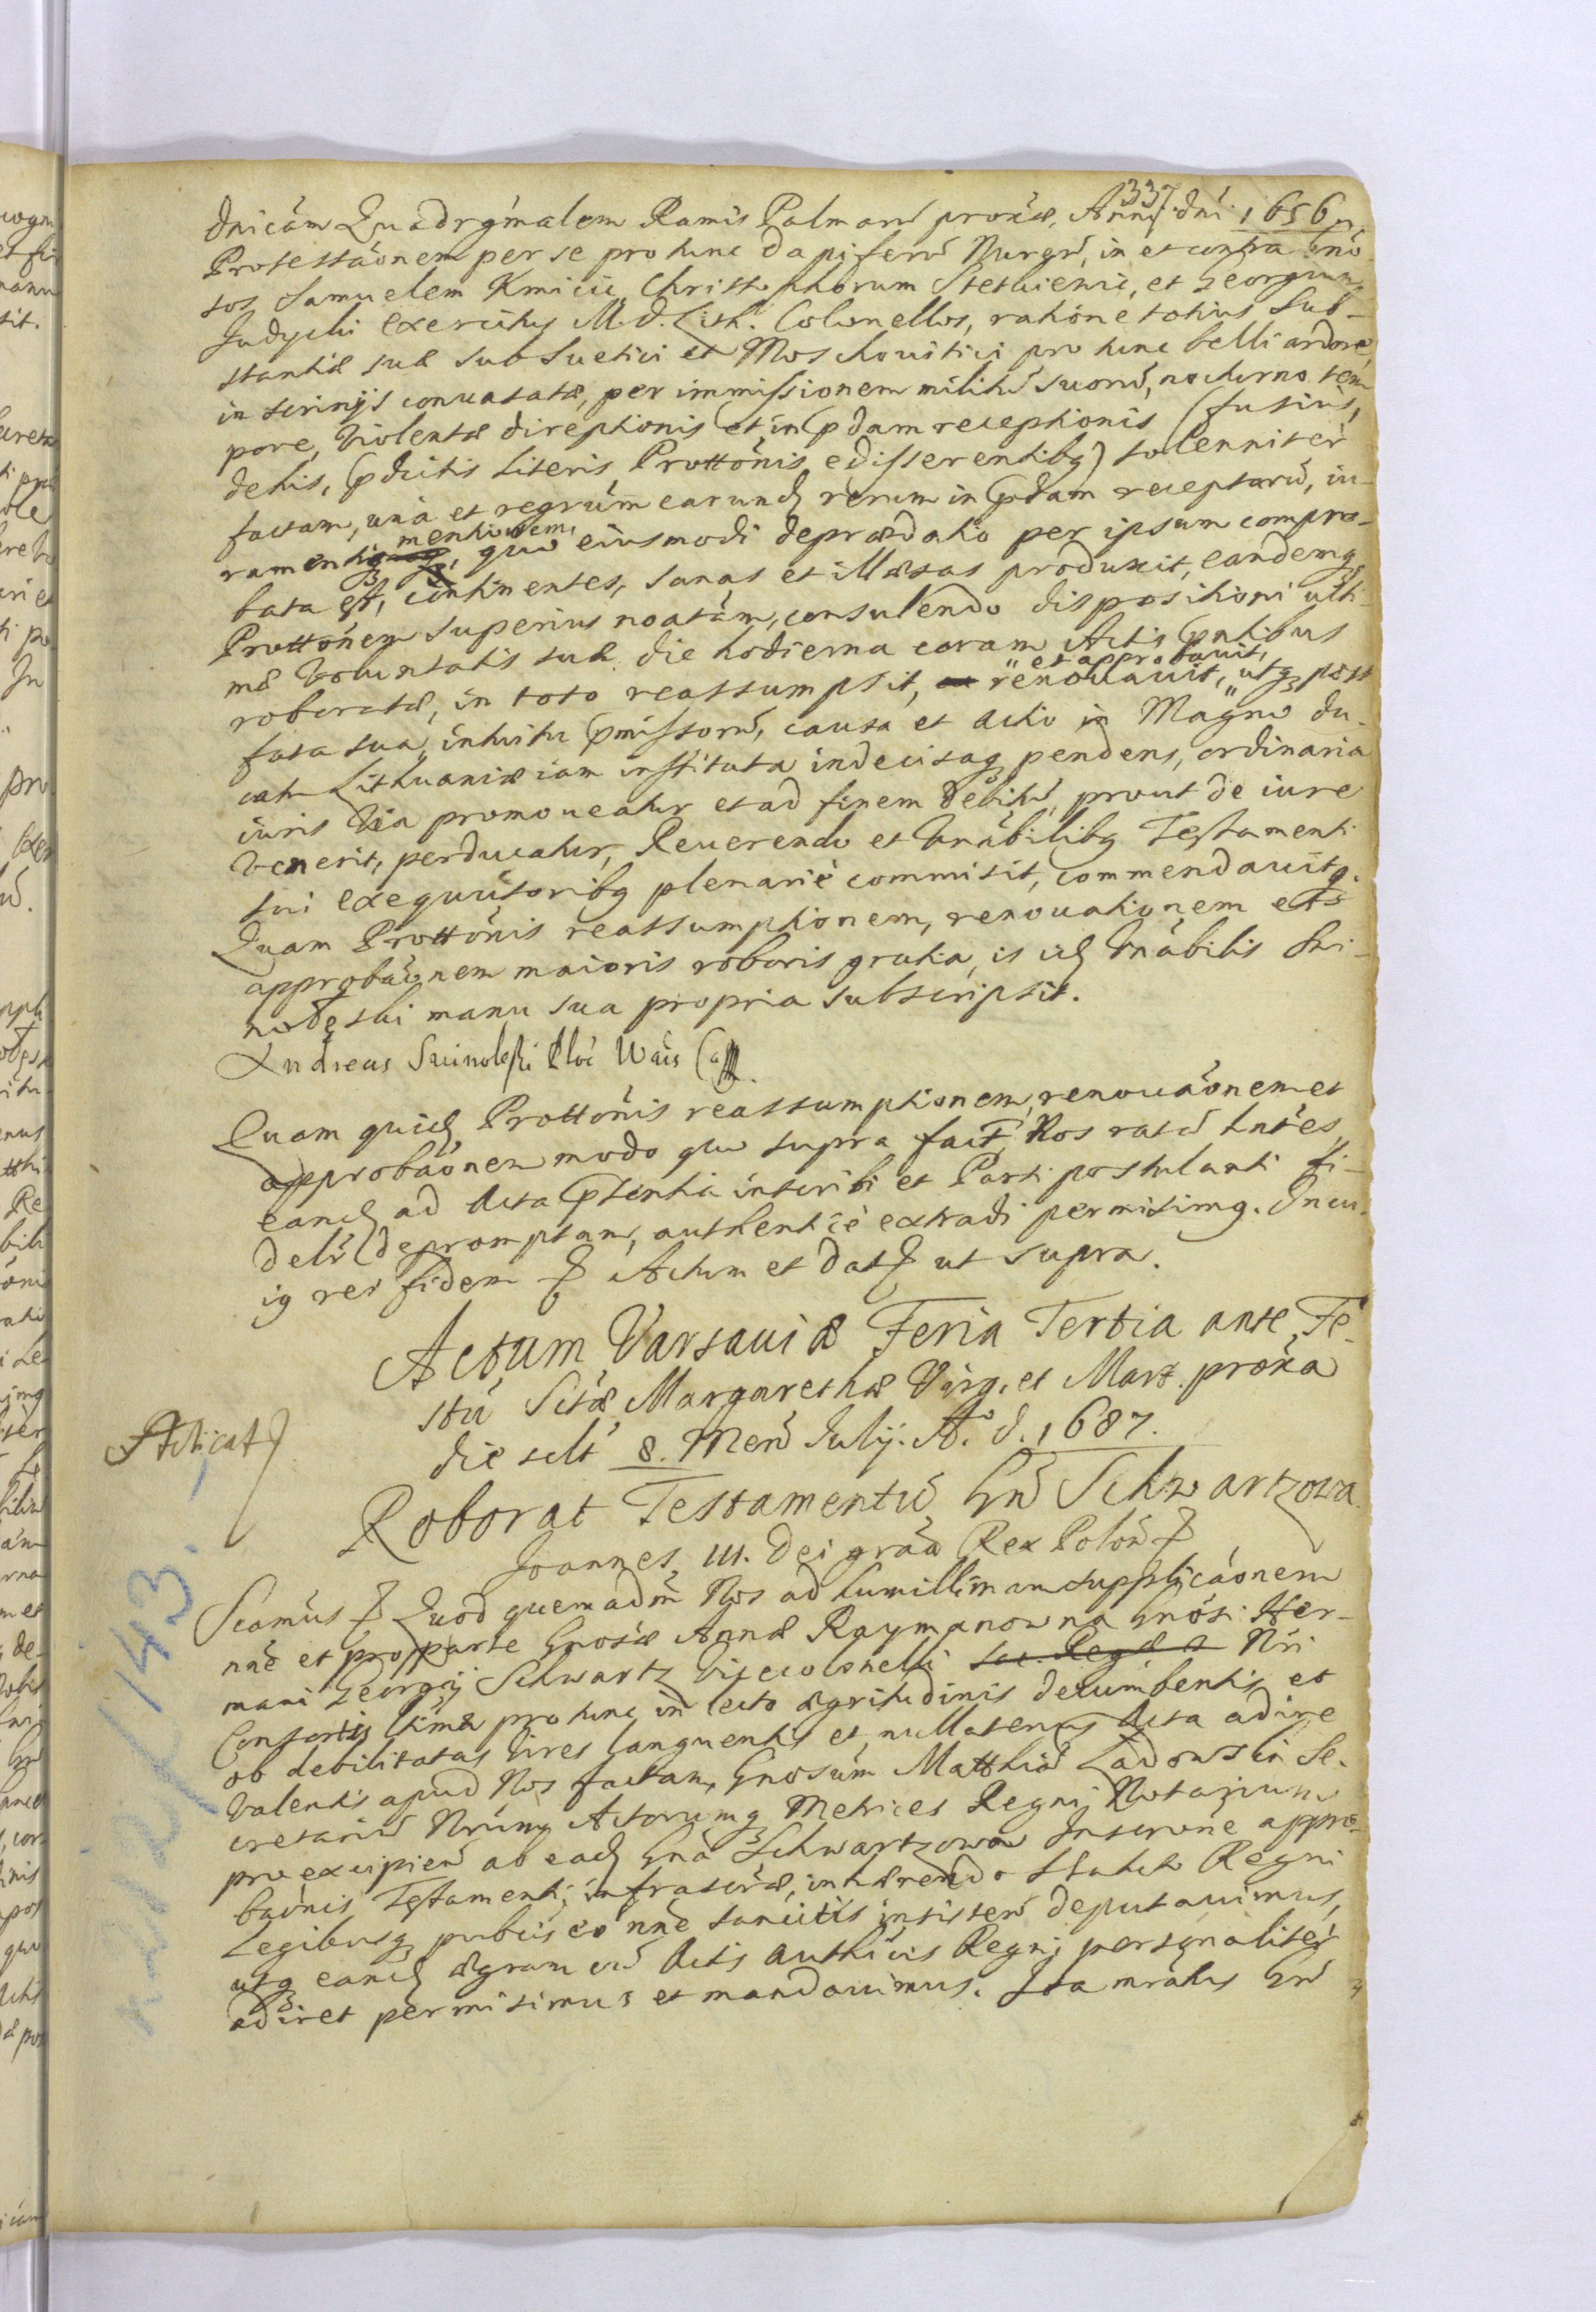 337
dnicam Quadrgmalem Ramis Palmarũ proxĩe, Anni dni 1656
Protestãonem per se pro tunc dapiferũ Nurgn̄, in et contra Gnõ-
sos Samuelem Kmicic, Christophorum Stetkiewic, et Georgium
Judycki exercitus M. D. Lith. Colonellos, ratione totius sub-
stantiæ suæ sub Suetici et Moschouitici pro tunc belli ardore,
in scrinijs conuasatæ, per immissionem militũ suorũ, nocturno tem-
pore, violentæ direptionis et in p̃dam receptionis (fusius,
de his, p̃dictis literis Prottonis edisserentibq) solenniter
factam, una et regrũm earund. rerum in p̃dam receptarũ, iu-
ramentiq mentionem, quo eiusmodi deprædatio per ipsum compro-
bata est, continentes, sanas et illæsas produxit, eandemq
Prottonem superius noatam, consulendo dispositioni ulti-
mæ Voluntatis suæ, die hodierna coram Actis p̃ntibus
roboratæ, in toto reassumpsit, renouauit, et approbauit, utq post
fata sua, intuitu p̃missorũ, causa et actio in Magno Du-
catu Lithuaniæ iam instituta indecisaq pendens, ordinaria
iuris via promoueatur et ad finem debitũ, prout de iure
venerit, perducatur, Reuerendo et Gnabilibq Testamenti
sui exequutoribq plenarie commisit, commendauitq.
Quam Prottonis reassumptionem, renouationem et
approbãonem maioris roboris gratia, is id. Gnabilis Swi-
nodęski manu sua propria subscripsit.
Andreas Swinolęski
Quam quid. Prottonis reassumptionem, renouãonem et
approbãonem modo quo supra fact. Nos ratũ hntes,
eand. ad Acta p̃sentia inscribi et Parti postulanti fi-
delr̃ depromptam, authentice extradi permisimq. In cu-
iq rei fidem Actum et dat. ut supra.
Actum Varsauiæ Feria Tertia ante Fe-
stũ Sctæ Margarethæ Virg. et Mart. proxa
die sclt 8. Men̄ Julij. A.o D. 1687.
Roborat Testamentũ Gn̄ Schwartzowa
Joannes III. Dei grãa Rex Polon̄
Scamus Quod quemadm̃ Nos ad humillimam supplicãonem
nne et pro parte Gnosæ Annæ Raymanowna Gnosi Her-
mani Georgij Schwartz Vicecolonelli Sac. Reg. Nri
Consortis ltimæ pro tunc in lecto ægritudinis decumbentis et
ob debilitatas vires languentis et nullatenus Acta adire
valentis apud Nos factam, Gnosum Matthiã Ladowski Se-
cretariũ Nrumq Actorumq Metrices Regni Notarium
pro excipien̄ ab ead. Gna Schwartzowa appro-
baõnis Testamenti infrascr̃æ, inhærendo Statuto Regni
Legibusq pubcis eo nne sancitis insisten̄ deputauimus,
utq eand. ægram cũ Actis authcis Regni personaliter
adiret permisimus et mandauimus. Ita mratus Gn̄